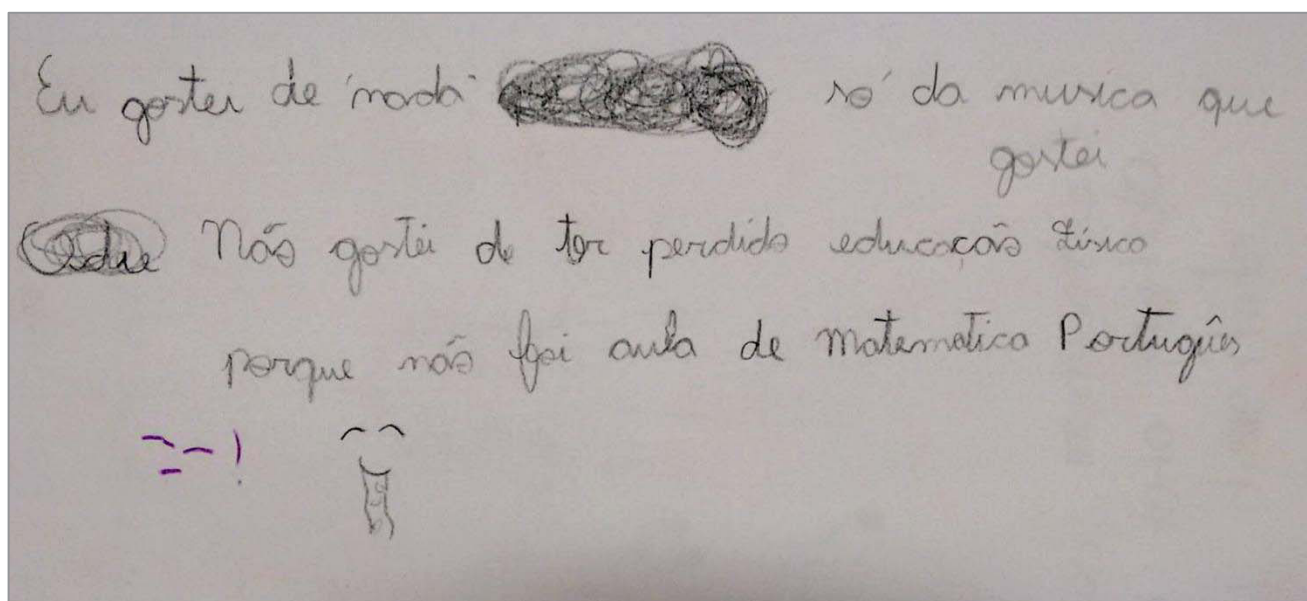 Eu gostei de nada só da musica que
gostei
Não gostei de ter perdido educação física
porque não foi aula de Matematica Português